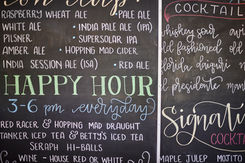 RASPBERRY WHEAT ALE • PALE ALE
WHITE ALE • INDIA PALE ALE (IPA)
PILSNER • SUPERSOLAR IPA
AMBER ALE • HOPPING MAD CIDER
INDIA SESSION ALE (ISA) • RED ALE
HAPPY HOUR
3-6 pm everyday
RED RACER & HOPPING MAD DRAUGHT
TANKER ICED TEA & BETTIS ICED TEA
SERAPH HI-BALLS
WINE - HOUSE RED OR WHITE
COCKTAIL
whiskey sour
old fashioned
el presidente
Signatu
MAPLE JULEP